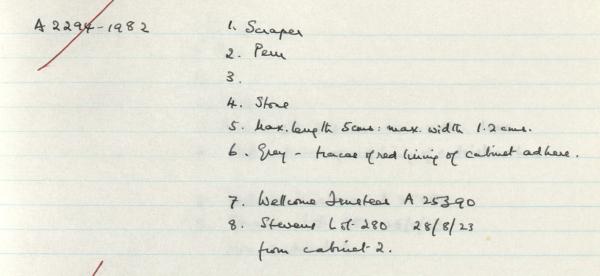 A 2294-1982 1. Scraper
2. Peru
3.
4. Stone
5. Max. length 5cms: max. width 1.2cms.
6. Grey - traces of red lining of cabinet adhere.
7. Wellcome Trustees A 25390
8. Stevens Lot 280 28/8/23
from cabinet 2.